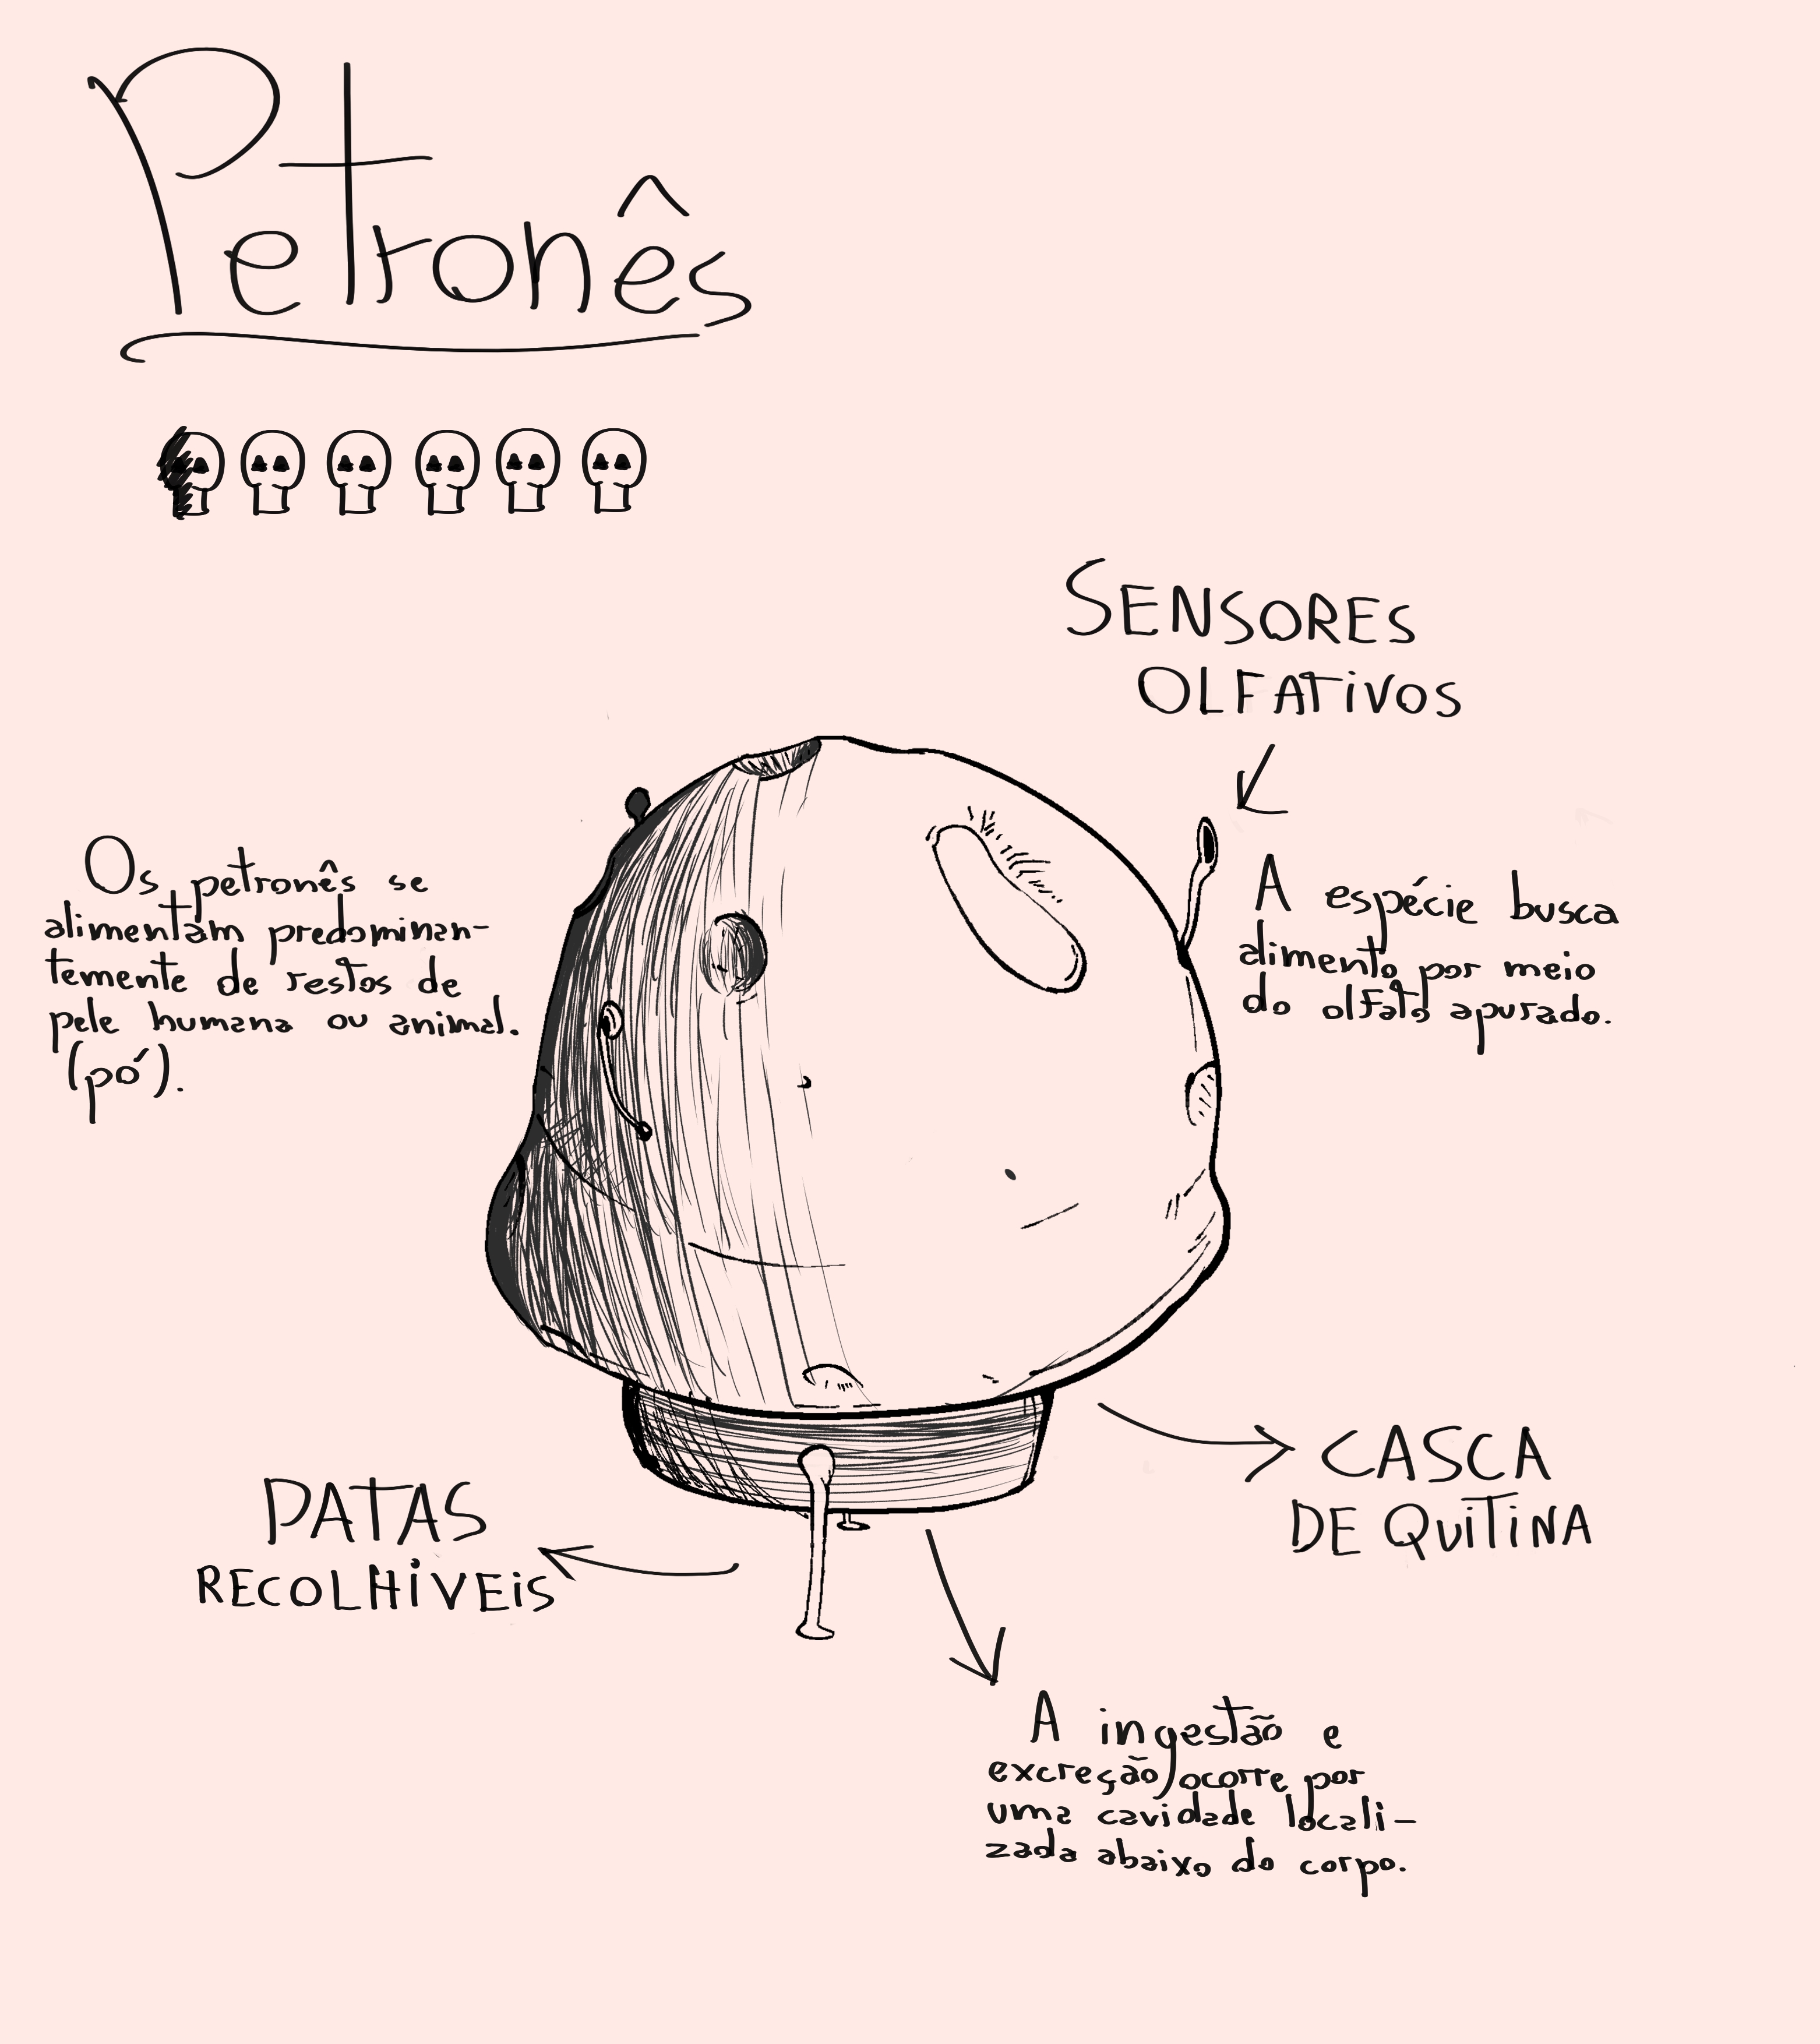 Petronês
SENSORES
OLFATIVOS
Os petronês se
alimentam predominan-
temente de restos de
pele humana ou animal.
(pó).
A espécie busca
alimento por meio
do olfato apurado.
CASCA
DE QUITINA
PATAS
RECOLHIVEIS
A ingestão e
excreção ocorre por
uma cavidade locali-
zada abaixo do corpo.